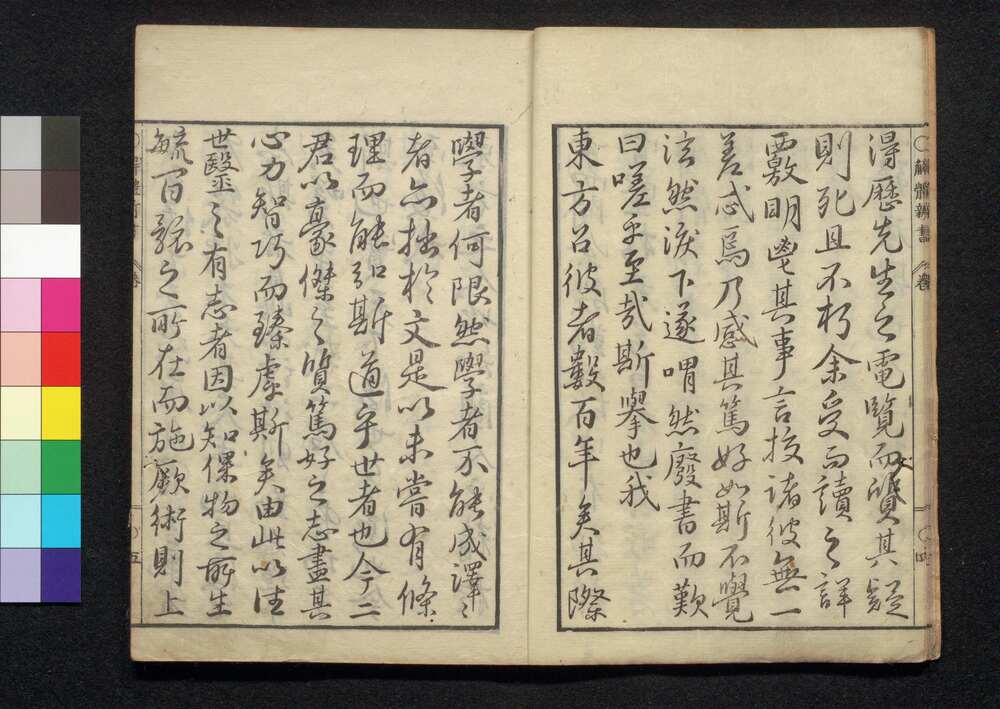 解體新書
卷
四
得歷先生之電覽而質其疑
則死且不朽余受而讀之詳
覈明鬯其事言挍諸彼無一
差忒焉乃感其篤好如斯不覺
泫然淚下遂喟然廢書而歎
曰嗟乎至哉斯擧也我
東方呂彼者數百年矣其際
學者何限然學者不能成譯〻
者亦拙於文是以未嘗有條
理而能弘斯道乎世者也今二
君以豪傑之質篤好之志盡其
心力智巧而臻處斯矣由此以往
世毉之有志者因以知倮物之所生
毓百骸之所在而施厥術則上
卷
五